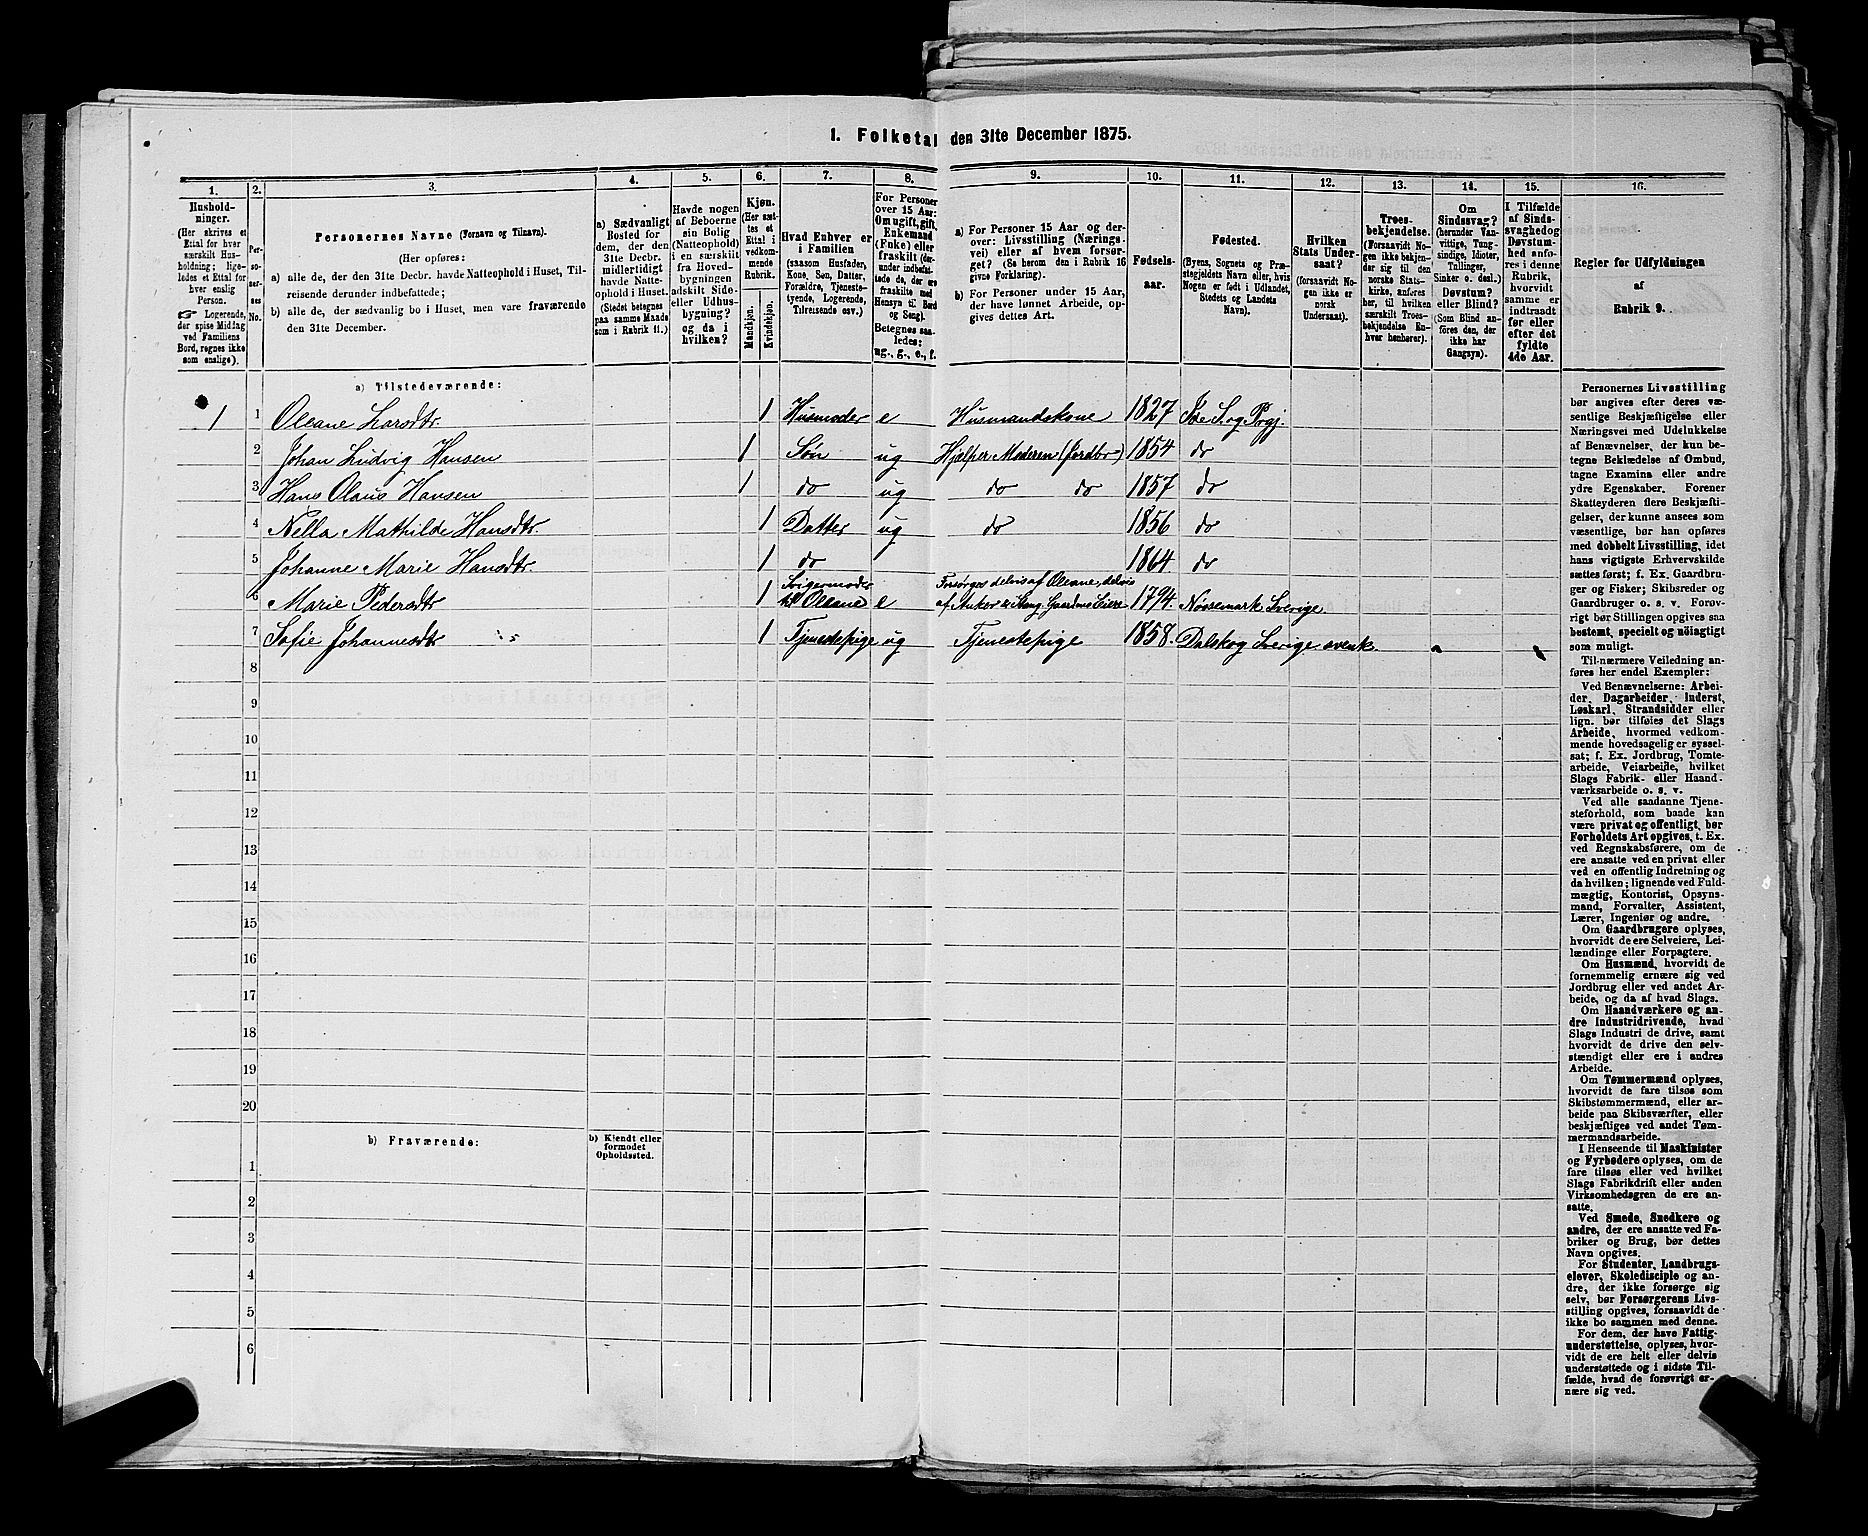 1. Folketal den 31te December 1875.
1. 2. 3. 4. 5. 6. 7. 8. 9. 10. 11. 12. 13. 14. 15. 16.
Hushold-
ninger.
(Her skrives et
Ettal for hver
særskilt Hus-
holdning; lige-
ledes et Ettal for
hver enslig
Person.
☞ Logerende,
der spise Middag
ved Familiens
Bord, regnes ikke
som enslige).
Per-
so-
ner-
nes
No.
Personernes Navne (Fornavn og Tilnavn).
(Her opføres:
a) alle de, der den 31te Decbr. havde Natteophold i Huset, Til-
reisende derunder indbefattede;
b) alle de, der sædvanlig bo i Huset, men vare fraværende
den 31te December.
a) Sædvanligt
Bosted for
dem, der den
31te Decbr.
midlertidigt
havde Natte-
ophold i Huset.
(Stedet betegnes
paa samme Maade
som i Rubrik 11.)
Havde nogen
af Beboerne
sin Bolig
(Natteophold)
i en særskilt
fra Hoved-
bygningen
adskilt Side-
eller Udhus-
bygning?
og da i
hvilken?
Kjøn.
(Her sæt-
tes et
Ettal i
vedkom-
mende
Rubrik.
Mandkjøn.
Kvindekjøn.
Hvad Enhver er
i Familien
(saasom Husfader,
Kone, Søn, Datter,
Forældre, Tjeneste-
tyende, Logerende,
Tilreisende osv.)
For Personer
over 15 Aar:
Om ugift, gift,
Enkemand
(Enke) eller
fraskilt (der-
under indbefat-
tede de, der ere
fraskilte med
Hensyn til Bord
og Seng).
Betegnes saa-
ledes:
ug., g., e., f.
a) For Personer 15 Aar og der-
over: Livsstilling (Nærings-
vei) eller af hvem forsør-
get? (Se herom den i Rubrik 16
givne Forklaring).
b) For Personer under 15 Aar,
der have lønnet Arbeide, op-
gives dettes Art.
Fødsels-
aar.
Fødested.
(Byens, Sognets og Præ-
stegjeldets Navn eller, hvis
Nogen er født i Udlandet,
Stedets og Landets
Navn).
Hvilken
Stats Under-
saat?
(forsaavidt No-
gen ikke er
norsk
Undersaat).
Troes-
bekjendelse.
(Forsaavidt No-
gen ikke bekjen-
der sig til den
norske Stats-
kirke, anføres
her, til hvilken
særskilt Troes-
bekjendelse En-
hver henhører).
Om
Sindssvag?
(herunder Van-
vittige, Tung-
sindige, Idioter,
Tullinger,
Sinker o. desl.)
Døvstum?
eller Blind?
(Som Blind an-
føres den, der
ikke har
Gangsyn).
I Tilfælde
af Sinds-
svaghed og
Døvstum-
hed anfø-
res i denne
Rubrik,
hvorvidt
samme er
indtraadt
før eller
efter det
fyldte
4de Aar.
Regler for Udfyldningen
af
Rubrik 9.
a) Tilstedeværende:
1 1 Oleane Larsdtr. 1 Husmoder e Husmandskone 1827 Ide S. og Prgj.
2 Johan Ludvig Hansen 1 Søn ug Hjælper Moderen (jordbr) 1854 do
3 Hans Olaus Hansen 1 do ug do do 1857 do
4 Nella Mathilde Hansdtr. 1 Datter ug do 1856 do
5 Johanne Marie Hansdtr. 1 do 1864 do
6 Marie Pedersdtr 1 Svigermoder til Oleane e Forsørges delvis af Oleane, delvis af Gaardens Eiere 1794. Nøssemark Sverige
7 Sofie Johannesdtr 1 Tjenestepige ug Tjenestepige 1858. Dalskog Sverige svensk.
8
9
10
11
12
13
14
15
16
17
18
19
20
b) Fraværende:
b) Kjendt eller
formodet
Opholdssted.
1
2
3
4
5
6
Personernes Livsstilling
bør angives efter deres væ-
sentlige Beskjæftigelse eller
Næringsvei med Udelukkelse
af Benævnelser, der kun be-
tegne Beklædelse af Ombud,
tagne Examina eller andre
ydre Egenskaber. Forener
Skatteyderen flere Beskjæfti-
gelser, der kunne ansees som
væsentlige, bør han opføres
med dobbelt Livsstilling, idet
hans vigtigste Erhvervskilde
sættes først; f. Ex. Gaardbru-
ger og Fisker; Skibsreder og
Gaardbruger o. s. v. Forøv-
rigt bør Stillingen opgives saa
bestemt, specielt og nøiagtigt
som muligt.
Til nærmere Veiledning an-
føres her endel Exempler:
Ved Benævnelserne: Arbei-
der, Dagarbeider, Inderst,
Løskarl, Strandsidder eller
lign. bør tilføies det Slags
Arbeide, hvormed vedkom-
mende hovedsagelig er syssel-
sat; f. Ex. Jordbrug, Tomte-
arbeide, Veiarbeide, hvilket
Slags Fabrik- eller Haand-
værksarbeide o. s. v.
Ved alle saadanne Tjene-
steforhold, som baade kan
være privat og offentligt, bør
Forholdets Art opgives, t. Ex.
ved Regnskabsførere, om de
ere ansatte ved en privat eller
ved en offentlig Indretning og
da hvilken; lignende ved Fuld-
mægtig, Kontorist, Opsyns-
mand, Forvalter, Assistent,
Lærer, Ingeniør og andre.
Om Gaardbrugere oplyses,
hvorvidt de ere Selveiere, Lei-
lændinge eller Forpagtere.
Om Husmænd, hvorvidt de
fornemmelig ernære sig ved
Jordbrug eller ved andet Ar-
beide, og da af hvad Slags.
Om Haandværkere og an-
dre Industridrivende, hvad
Slags Industri de drive, samt
hvorvidt de drive den selv-
stændigt eller ere i andres
Arbeide.
Om Tømmermænd oplyses,
hvorvidt de fare tilsøs som
Skibstømmermænd, eller ar-
beide paa Skibsværfter, eller
beskjæftiges ved andet Tøm-
mermandsarbeide.
I Henseende til Maskinister
og Fyrbødere oplyses, om de
fare tilsøs eller ved hvilket
Slags Fabrikdrift eller anden
Virksomhedsgren de ere an-
satte.
Ved Smede, Snedkere og
andre, der ere ansatte ved Fa-
briker og Brug, bør dettes
Navn opgives.
For Studenter, Landbrugs-
elever, Skoledisciple og an-
dre, der ikke forsørge sig
selv, bør Forsørgerens Livs-
stilling opgives, forsaavidt de
ikke bo sammen med denne.
For dem, der have Fattig-
understøttelse, oplyses, hvor-
vidt de ere helt eller delvis
understøttede og i sidste Til-
fælde, hvad de forøvrigt er-
nære sig ved.